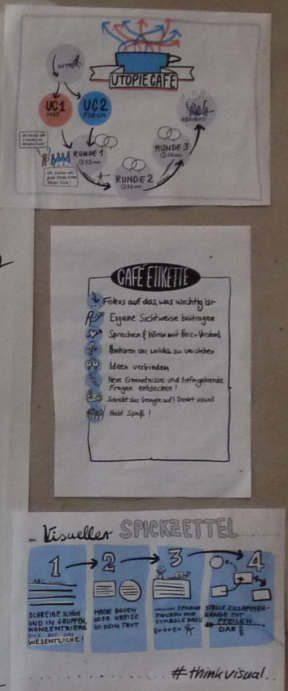 INTRO
UTOPIE CAFÉ
UC1
UC2
FORUM
RUNDE 1
RUNDE 2
RUNDE 3
CAFÉ ETIKETTE
Fokus auf das, was wichtig ist
Eigene Sichtweise beitragen
Sprechen & hören mit Herz & Verstand
um wirklich zu verstehen
Ideen verbinden
Neue Erkenntnisse und tiefergehende
Fragen entdecken!
Schreibt das Gesagte auf! Denkt visuell
Habt Spaß!
Visueller SPICKZETTEL
1 2 3 4
SCHREIBE SCHÖN
UND IN GRUPPEN,
KONZENTRIERE
DICH AUF DAS
WESENTLICHE!
MACHE BOXEN
ODER KREISE
UM DEN TEXT
FIGUREN UND
SYMBOLE DAZU
STELLE ZUSAMMEN-
HÄNGE MIT
PFEILEN
DAR
#thinkvisual